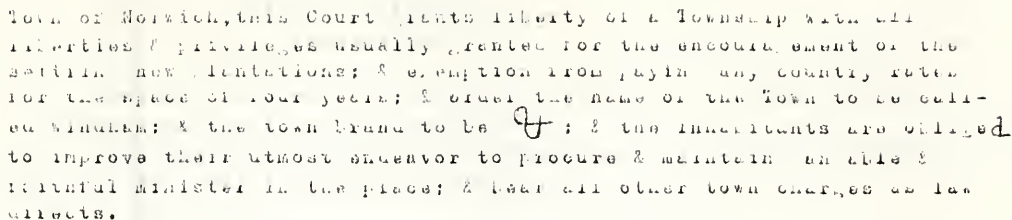 Town of Norwich, this Court grants liberty of a Township with all
liberties & privileges usually granted for the encouragement of the
settling new plantations; & exemption from paying any country rates
for the space of four years; & order the name of the Town to be call-
ed Windham; & the town brand to be : & the inhabitants are obliged
to improve their utmost endeavor to procure & maintain an able &
faithful minister in the place; & bear all other town charges as law
directs.